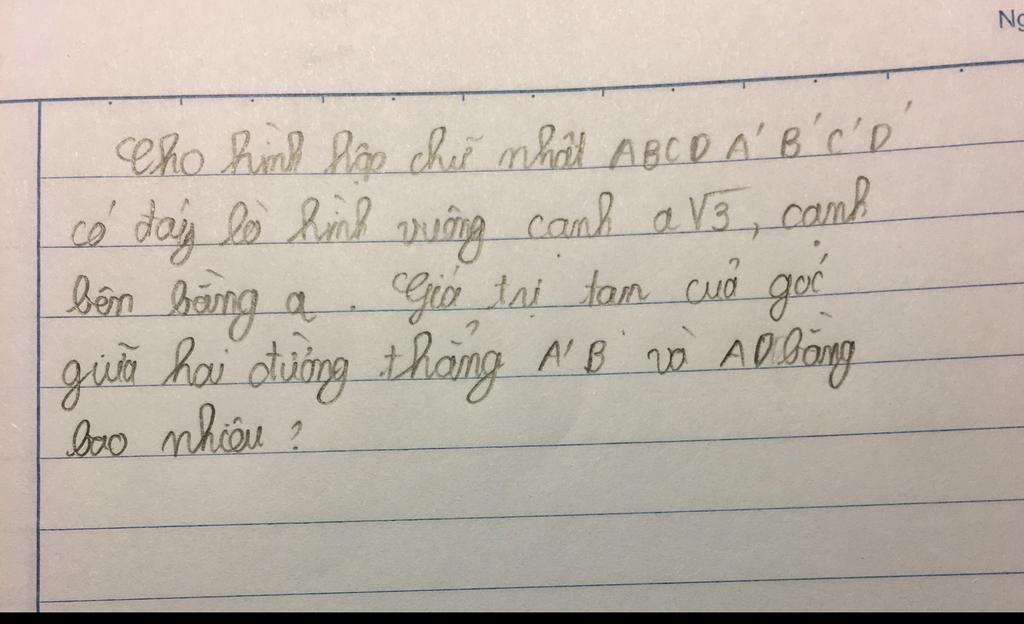 Ng
Cho hình hộp chữ nhật ABCD A'B'C'D'
có đáy là hình vuông cạnh a√3, cạnh
bên bằng a. Giá trị tan của góc
giữa hai đường thẳng A'B và AD bằng
bao nhiêu?